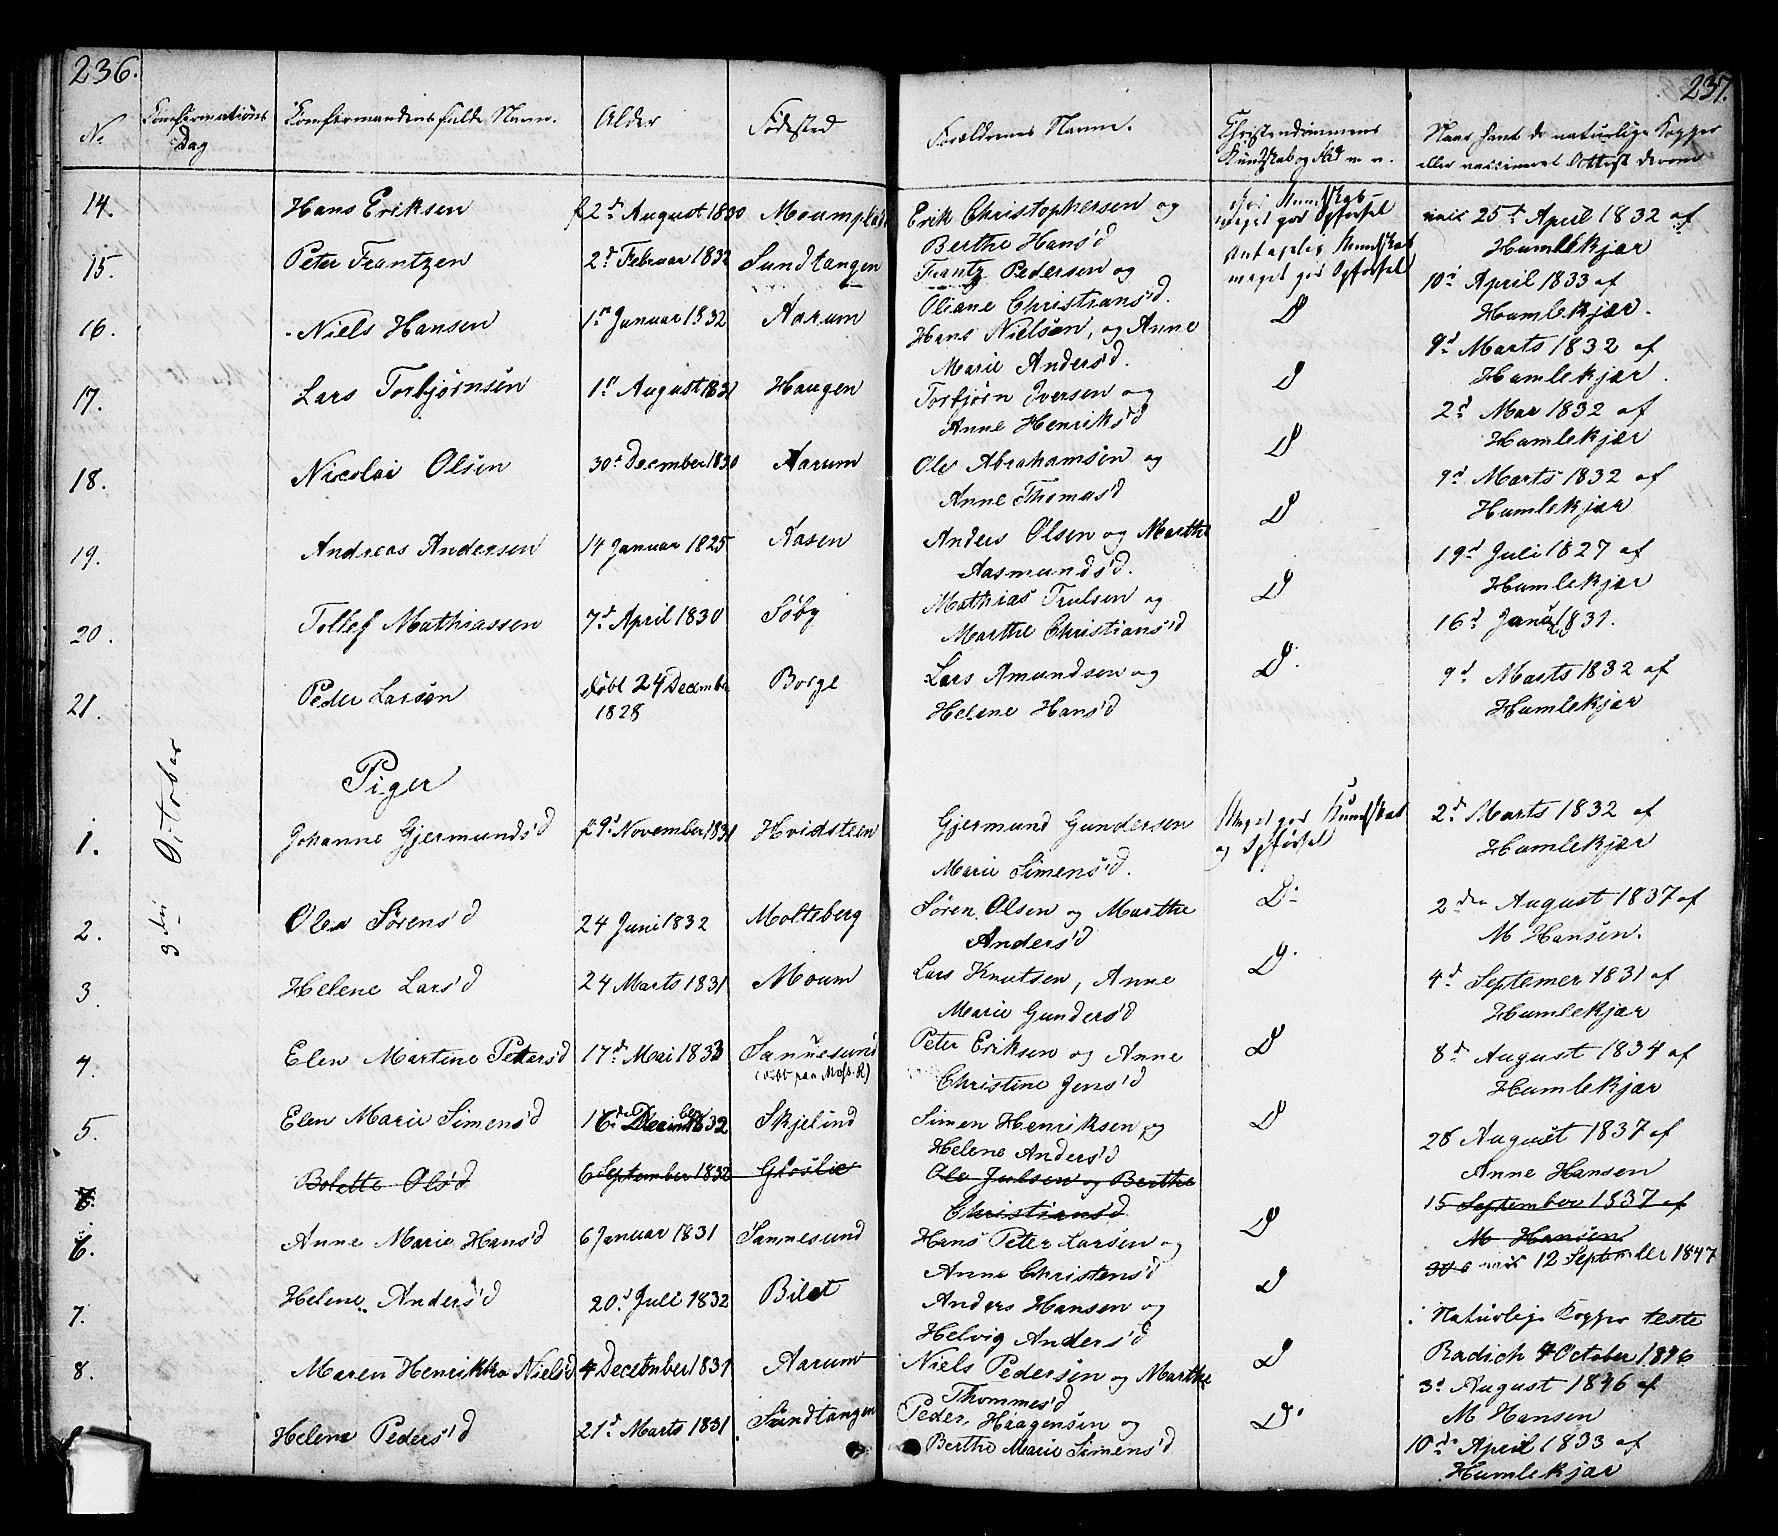 236.
237.
No Confirmations Dag
Confirmandens fulde Navn.
Alder
Fødested
Forældrenes Navne.
Christendommens Kundskab og Flid m. v.
Naar havt de naturlige Kopper
eller vaccineret Attest derom
14. Hans Eriksen f 2d August 1830 Moumplads Erik Christophersen og Kundskab vac 25d April 1832 af
meget god Opførsel
Berthe Hans'd Humlekjær
15. Peter Frantzen 2d Februar 1832 Sundtangen Frantz Pedersen og Antagelig Kundskab meget god Opførsel 10d April 1833 af
Oliane Christians'd. Humlekjær.
16. Niels Hansen 1n Januar 1832 Aarum Hans Nielsen, og Anne D 9d Marts 1832 af
Marie Anders'd. Humlekjær.
17. Lars Torbjørnsen 1n August 1831 Haugen Torbjørn Iversen og D 2d Mar 1832 af
Anne Henriks'd Humlekjær
18. Nicolai Olsen 30d December 1830 Aarum Ole Abrahamsen og D 9d Marts 1832 af
Anne Thomas'd Humlekjær
19. Andreas Andersen 14 Januar 1825 Aasen Anders Olsen og Marthe D 19d Juli 1827 af
Aasmunds'd. Humlekjær
20. Tollef Mathiassen 7d April 1830 Søby Mathias Trulsen og D 16d Janu 1831.
Marthe Christians'd
21. Peder Larsen døbt 24 Decembr Borge Lars Amundsen og D. 9d Marts 1832 af
1828 Helene Hans'd Humlekjær
Piger
October
1. Johanne Gjermunds'd f 9d November 1831 Hvidsteen Gjermund Gundersen Meget god Kundskab 2d Marts 1832 af
og Opførsel
Marie Simens'd. Humlekjær
2. Olea Sørens'd 24 Juni 1832 Molteberg Søren Olsen og Marthe D. 2den August 1837 af
Anders'd M Hansen.
3. Helene Lars'd 24 Marts 1831 Moum Lars Knutsen, Anne D. 4d Septemer 1831 af
Marie Gunders'd Humlekjær
4. Elen Martine Peters'd 17d Mai 1833 Sannesund Peter Eriksen og Anne D 8d August 1834 af
(døbt paa Moss R)
Christine Jens'd Humlekjær
5. Elen Marie Simens'd 16d Decembler 1832 Skjelind Simen Henriksen og D 28 August 1837 af
Helene Anders'd Anne Hansen
7. Bolette Ols'd 6 September 1832 Groslie Ole Julsen og Berthe
Christians'd 15 September 1837 af
M Hansen
6. Anne Marie Hans'd 6 Januar 1831 Sannesund Hans Peter Larsen og D vac 12 September 1847
Anne Christens'd
7. Helene Anders'd 20d Juli 1832 Bilet Anders Hansen og D Naturlige Kopper teste
Helvig Anders'd Radich 4 October 1846
8. Maren Henrikka Niels'd 4 December 1831 Aarum Niels Pedersen og Marthe D 3d August 1846 af
Thommes'd M Hansen
Helene Peders'd 21d Marts 1831 Sundtangen Peder Haagensen og D. 10d April 1833 af
Berthe Marie Simens'd Humlekjær